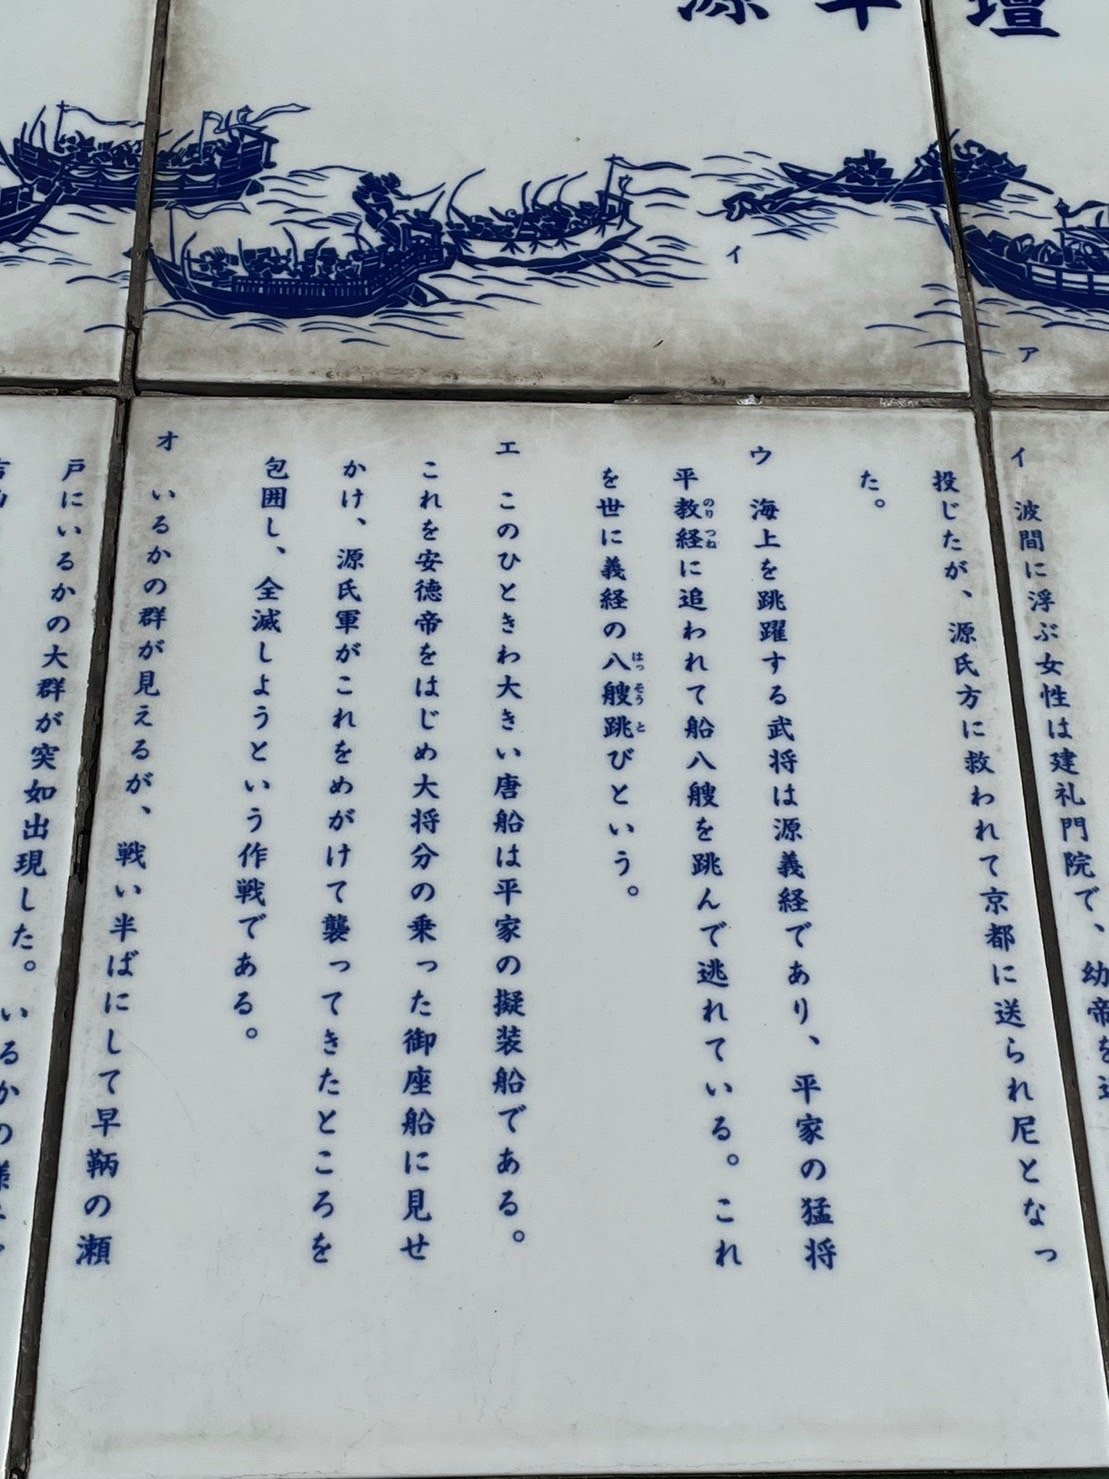 源平壇
イ
ア
イ 波間に浮ぶ女性は建礼門院で、幼帝を
投じたが、源氏方に救われて京都に送られ尼となっ
た。
ウ 海上を跳躍する武将は源義経であり、平家の猛将
平教経に追われて船八艘を跳んで逃れている。これ
を世に義経の八艘跳びという。
エ このひときわ大きい唐船は平家の擬装船である。
これを安徳帝をはじめ大将分の乗った御座船に見せ
かけ、源氏軍がこれをめがけて襲ってきたところを
包囲し、全滅しようという作戦である。
オ いるかの群が見えるが、戦い半ばにして早鞆の瀬
戸にいるかの大群が突如出現した。いるかの